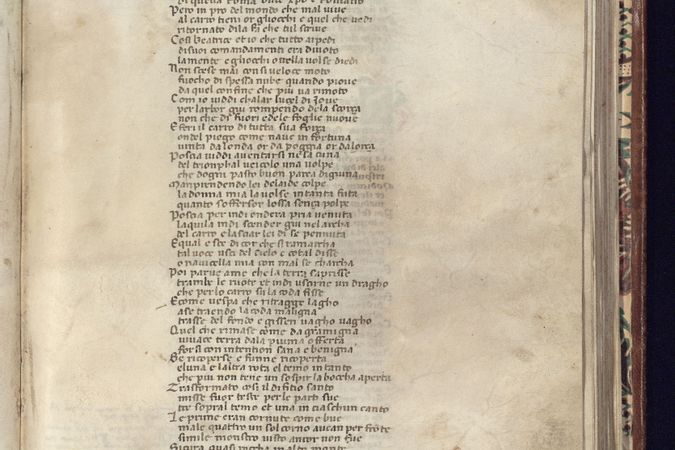 di quella roma onde xpo e romano
Pero in pro del mondo che mal vive
al carro tieni or gliocchi e quel che vedi
ritornato di la fa che tu scrive
Cosi beatrice et io che tutto aipedi
disuoi comandamenti era divoto
lamente e gliocchi ovella volse diedi
Non scese mai con si veloce moto
fuocho di spessa nube quando piove
da quel confine che piu va rimoto
Com io viddi chalar luccel di Jove
per larbor giu rompendo dela scorça
non che di fiori e dele foglie nuove
E feri il carro di tutta sua força
ondel piego come nave in fortuna
vinta da londa or da poggia or da lorça
Poscia viddi aventarsi nela cuna
del trionphal veicolo una volpe
che dogni pasto buon parea digiuna
Ma riprendendo lei di laide colpe
la donna mia la volse in tanta futa
quanto soffersor lossa sença polpe
Poscia per indi ondera pria venuta
laquila vidi scender giu nel archa
del carro e lasciar lei di se pennuta
E qual esce di cor che si ramarcha
tal voce usci del cielo e cotal disse
o navicella mia com mal se charcha
Poi parve a me che la terra saprisse
tramble le ruote et vidi uscirne un dragho
che per lo carro su la coda fisse
E come vespa che ritragge lagho
a se traendo la coda maligna
trasse del fondo e gissen vagho vagho
Quel che rimase come da gramigna
vivace terra dala piuma offerta
forsi con intention sana e benigna
Se ricoperse e funne ricoperta
e luna e laltra rota el temo in tanto
che piu non tene un sospir la boccha aperta
Trasformato cosi il dificio santo
misse fuor teste per le parti sue
tre sopral temo et una in ciaschun canto
Le prime eran cornute come bue
male quattro un sol corno avean per frōte
simile monstro visto ancor non fue
Sicura quasi roccha in alto monte